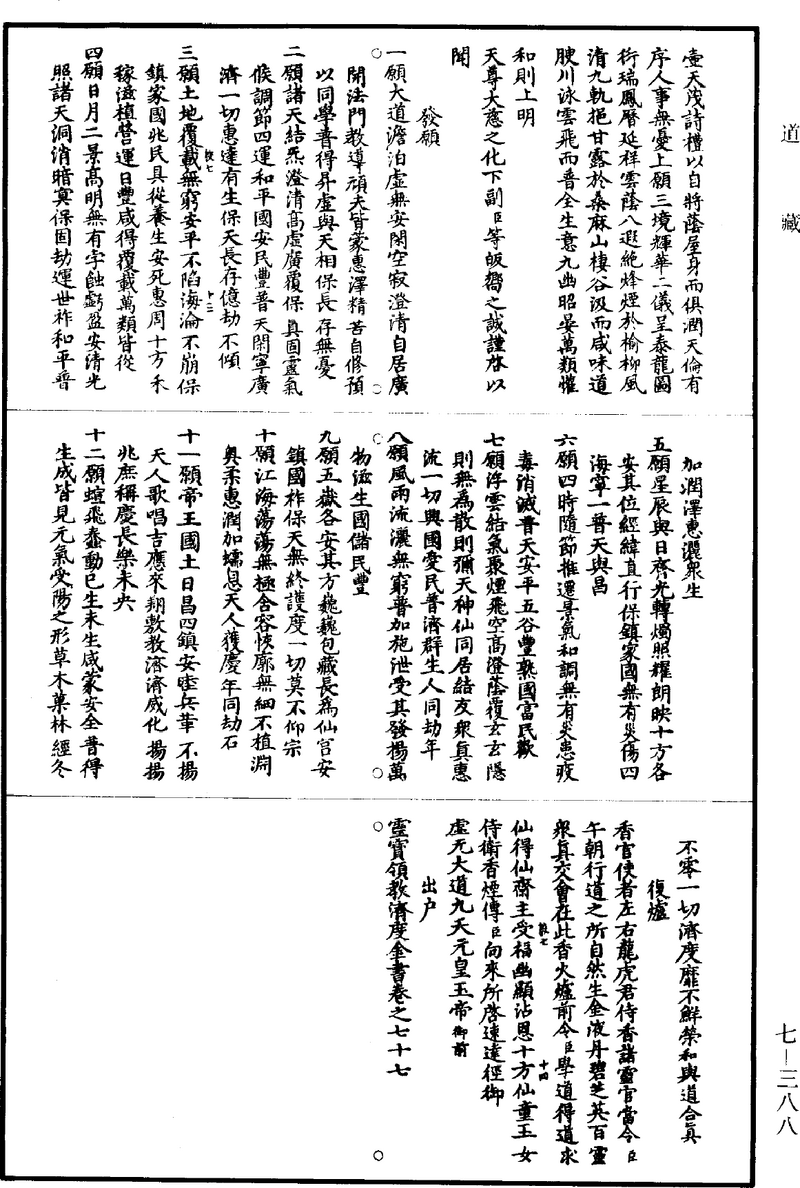 道藏
壼天茂詩禮以自將蔭屋身而俱潤天倫有
序人事無憂上願三境輝華二儀呈泰龍圖
衍瑞鳳曆延祥雲蔭八遐絶烽煙於榆柳風
清九軌挹甘露於桑麻山棲谷汲而咸味道
腴川泳雲飛而普全生意九幽昭晏萬類懽
和則上明
天尊大慈之化下副臣等皈嚮之誠謹啓以
聞
發願
一願大道澹泊虛無安閑空寂澄清自居廣
開法門教導頑夫皆蒙惠澤精苦自修預
以同學普得昇虛與天相保長存無憂
二願諸天結炁澄清高虛廣覆保真固靈氣
候調節四運和平國安民豐普天閑寧廣
濟一切惠逮有生保天長存億劫不傾
三願土地覆載無窮安平不陷海淪不崩保
鎮家國兆民具從養生安死惠周十方禾
稼滋植營運日豐咸得覆載萬類皆從
四願日月二景高明無有字蝕虧盈安清光
照諸天洞消暗冥保固劫運世祚和平普
加潤澤惠灑衆生
五願星辰與日齊光轉燭照耀朗映十方各
安其位經緯直行保鎮家國無有災傷四
海寧一普天興昌
六願四時隨節推遷景氣和調無有災患疫
毒消滅普天安平五谷豐熟國富民歡
七願浮雲結氣聚煙飛空高澄蔭覆玄玄隱
則無為散則彌天神仙同居結友衆真惠
流一切興國愛民普濟群生人同劫年
八願風雨流灑無窮普加施泄受其發揚萬
物滋生國儲民豐
九願五嶽各安其方巍巍包藏長為仙宮安
鎮國祚保天無終護度一切莫不仰宗
十願江海蕩蕩無極含容恢廓無細不植淵
奥柔惠潤加蠕息天人獲慶年同劫石
十一願帝王國土日昌四鎮安睦兵革不揚
天人歌唱吉應來翔敷教濟濟威化揚揚
兆庶稱慶長樂未央
十二願蝖飛蠢動已生未生咸蒙安全普得
生成皆見元氣受陽之形草木菓林經冬
不零一切濟度靡不鮮榮和與道合真
復爐
香官使者左右龍虎君侍香諸靈官當令臣
午朝行道之所自然生金液丹碧芝英百靈
衆真交會在此香火爐前令臣學道得道求
仙得仙齋主受福幽顯沾恩十方仙童玉女
侍衛香煙傳臣向來所啓速達徑御
虛无大道九天元皇玉帝御前
出户
靈寶領教濟度金書卷之七十七
七—三八八